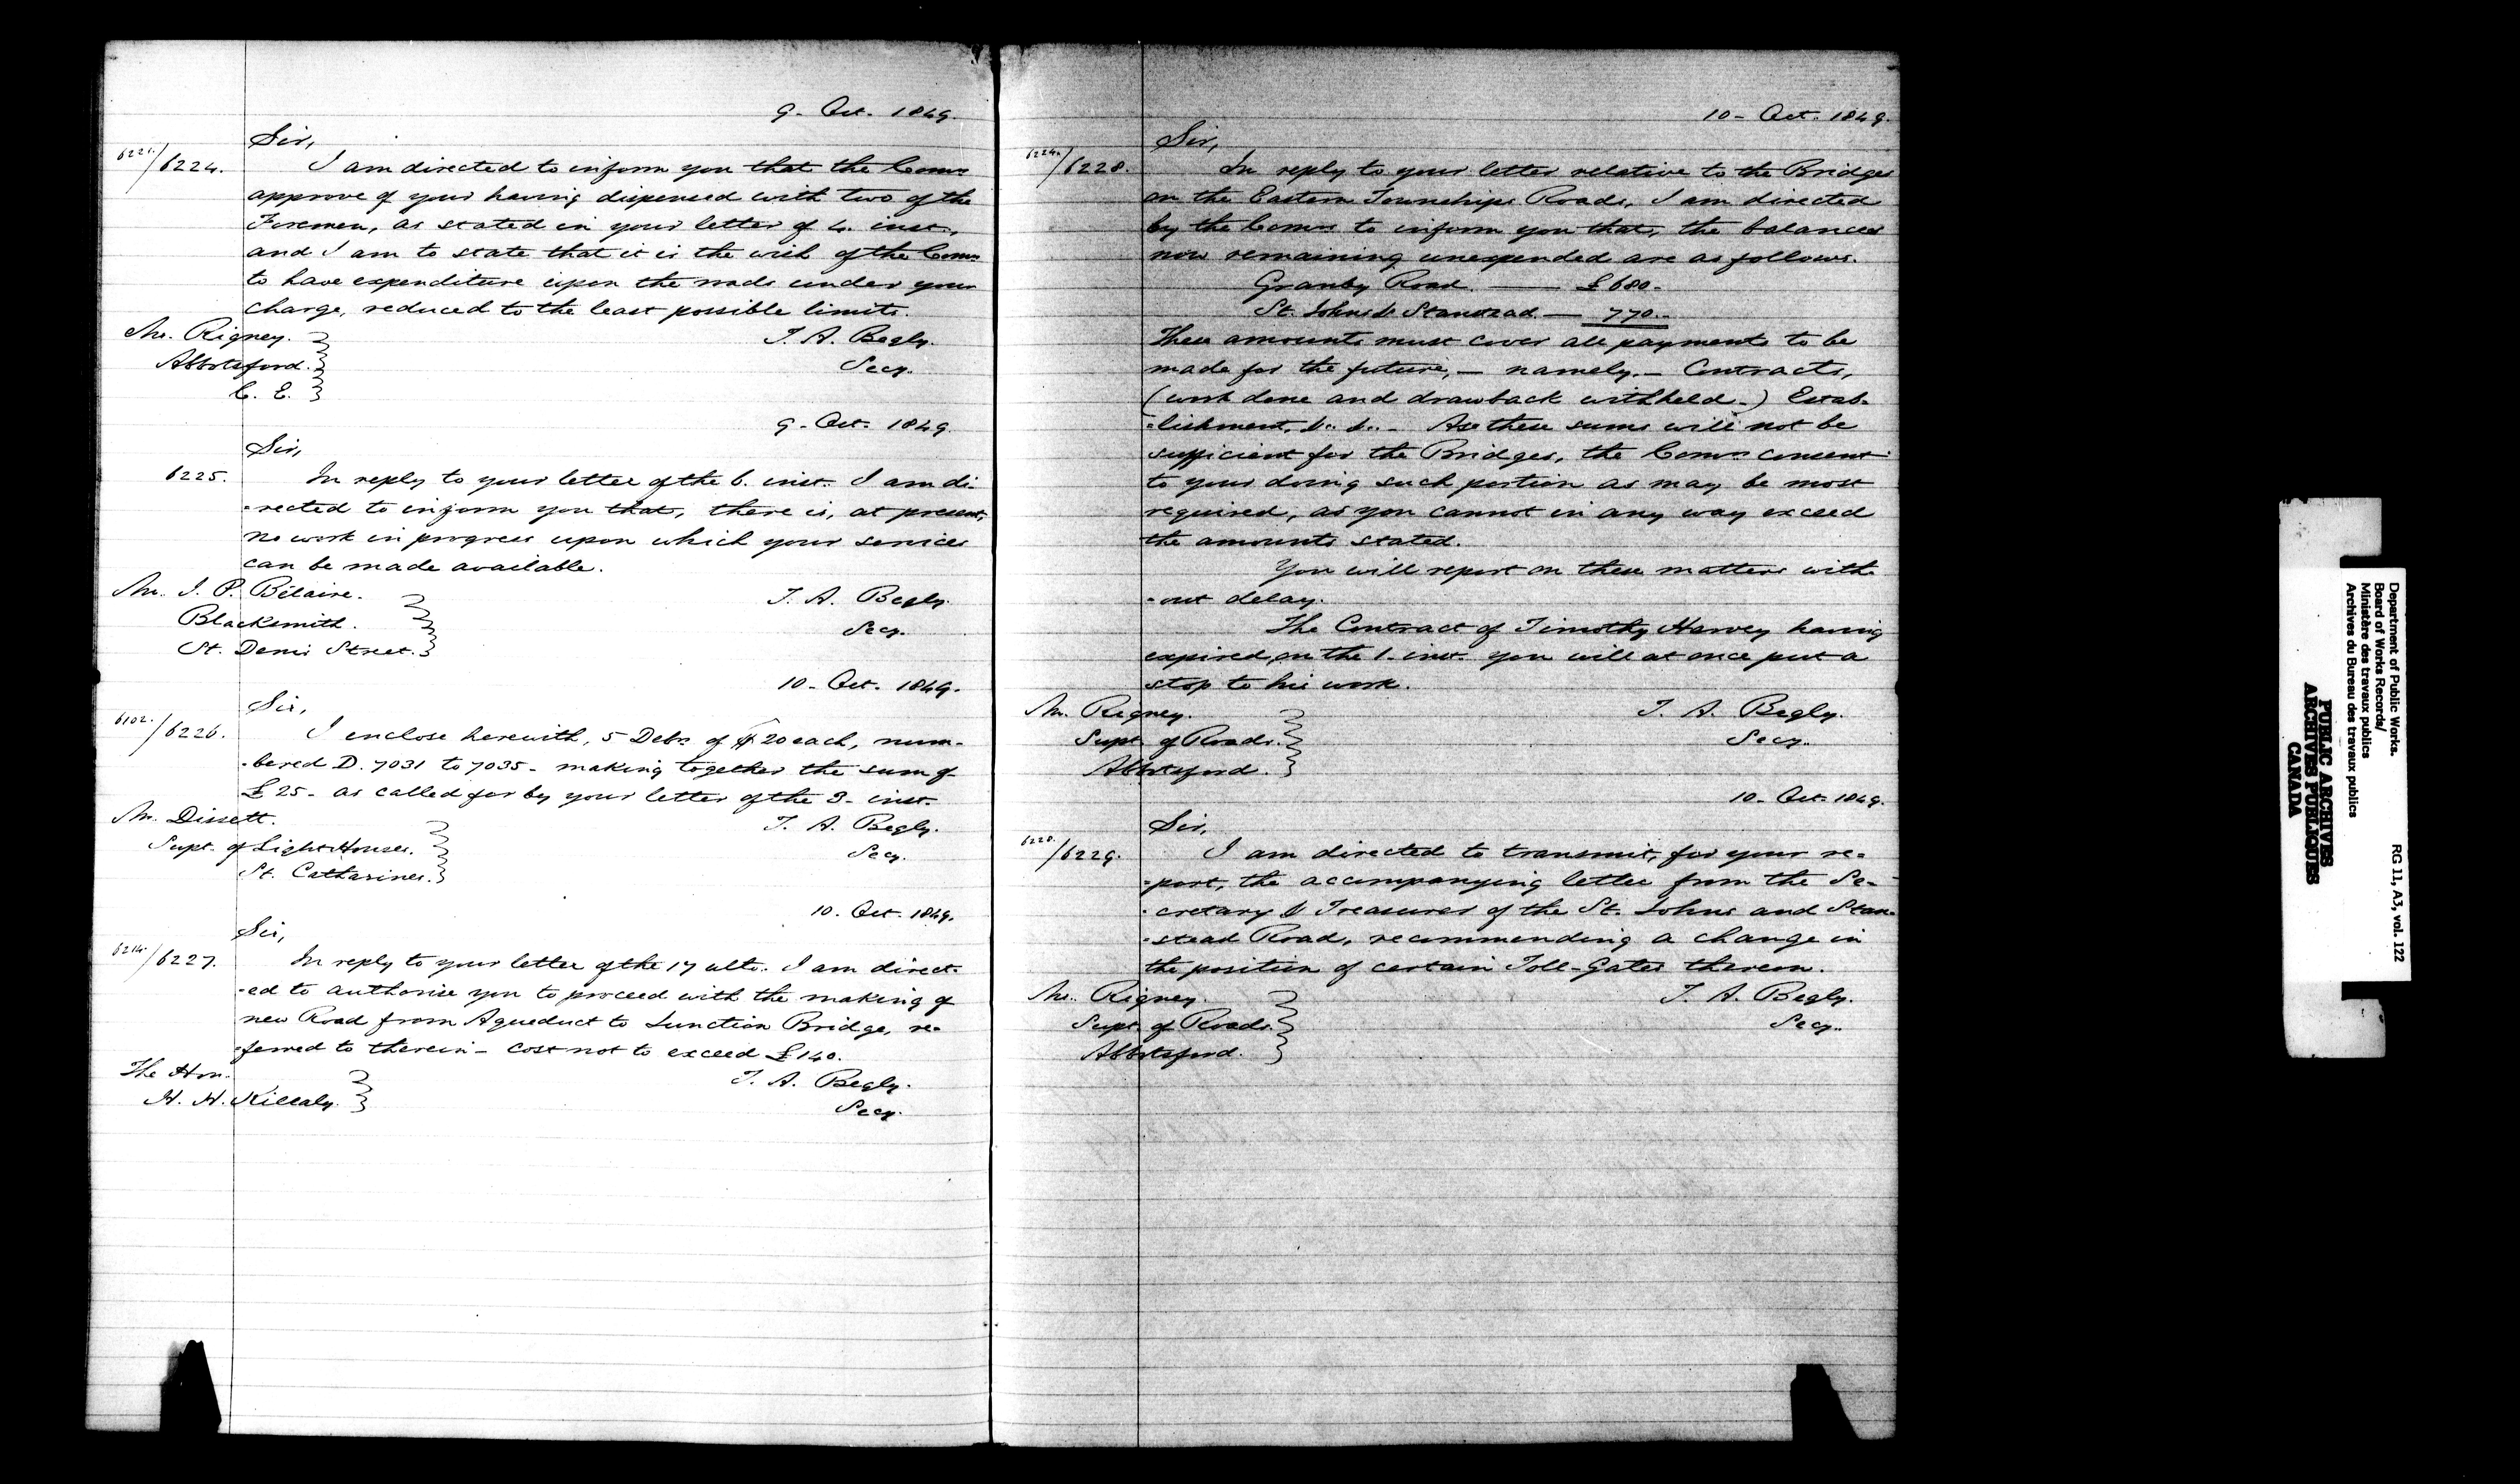 9- Oct. 1849.
Sir,
6221./6224. I am directed to inform you that the Comrs
approve of your having dispensed with two of the
Foremen, as stated in your letter of 4. inst.,
and I am to state that it is the wish of the Comrs
to have expenditure upon the roads under your
charge, reduced to the least possible limits.
Mr. Rigney. T. A. Begly.
Abbotsford. Secy.
C. E.
9- Oct. 1849.
Sir,
6225. In reply to your letter of the 6. inst. I am di-
-rected to inform you that, there is, at present,
no work in progress upon which your services
can be made available.
Mr. J. P. Bélaire. T. A. Begly.
Blacksmith. Secy.
St. Denis Street.
10- Oct. 1849.
Sir,
6102./6226. I enclose herewith, 5 Debrs of $20 each, num-
-bered D. 7031 to 7035- making together the sum of
£25- as called for by your letter of the 3- inst.
Mr. Dissett. T. A. Begly.
Supt. of Light Houses. Secy.
St. Catharines.
10. Oct. 1849.
Sir,
6214./6227. In reply to your letter of the 17 ulto. I am direct-
-ed to authorise you to proceed with the making of
new Road from Aqueduct to Junction Bridge, re-
-ferred to therein- cost not to exceed £140.
The Hon. T. A. Begly.
H. H. Killaly. Secy.
10- Oct. 1849.
Sir,
6224./6228. In reply to your letter relative to the Bridges
on the Eastern Townships Roads, I am directed
by the Comrs to inform you that, the balances
now remaining unexpended are as follows.
Granby Road. — £680-
St. Johns & Stanstead. — 770.-
These amounts must cover all payments to be
made for the future,- namely.- Contracts,
(work done and drawback withheld-) Estab-
-lishment, &c. &c.- As these sums will not be
sufficient for the Bridges, the Comrs consent
to your doing such portion as may be most
required, as you cannot in any way exceed
the amounts stated.
You will report on these matters with-
-out delay.
The Contract of Timothy Harvey having
expired on the 1- inst. you will at once put a
stop to his work.
Mr. Rigney. T. A. Begly.
Supt. of Roads. Secy.
Abbotsford.
10- Oct. 1849.
Sir,
6228./6229. I am directed to transmit, for your re-
-port, the accompanying letter from the Se-
-cretary & Treasurer of the St. Johns and Stan-
-stead Road, recommending a change in
the position of certain Toll-Gates thereon.
Mr. Rigney. T. A. Begly.
Supt. of Roads. Secy.
Abbotsford.
Department of Public Works.
Board of Works Records/
Ministère des travaux publics
Archives du Bureau des travaux publics
RG 11, A3, vol. 122
PUBLIC ARCHIVES
ARCHIVES PUBLIQUES
CANADA